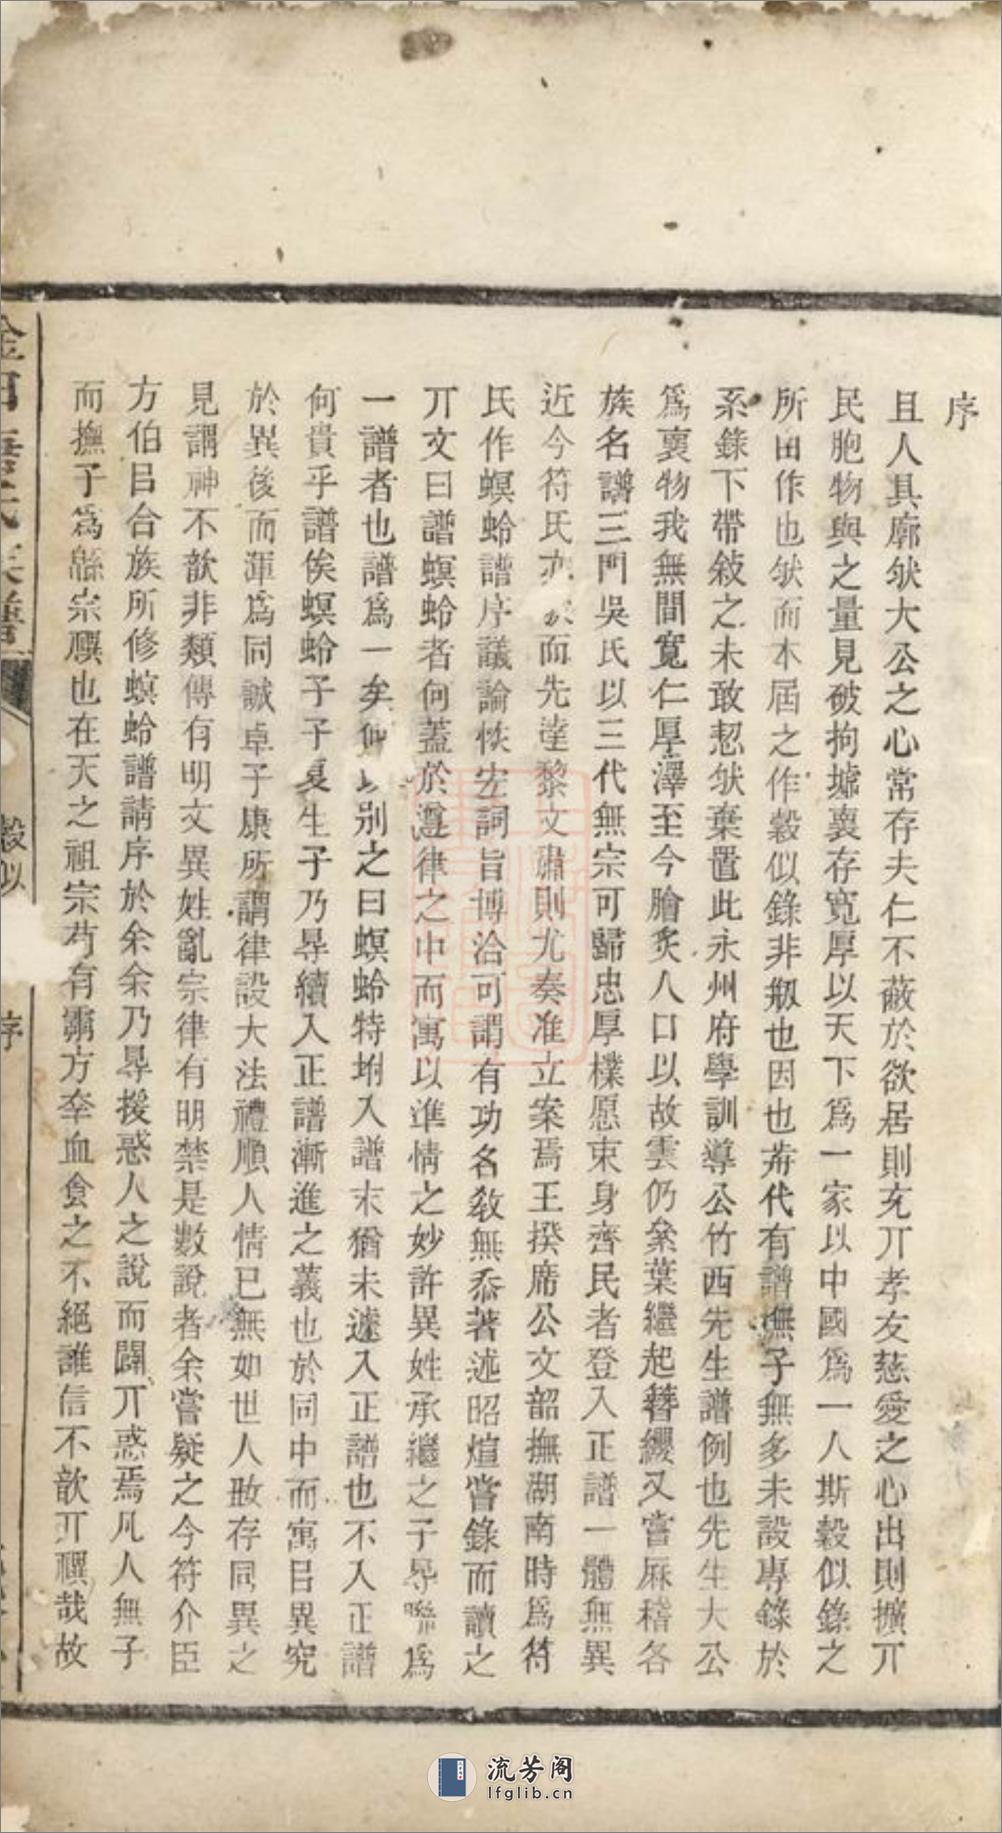 序
且人具廓欤大公之心常存夫仁不蔽於欲居則充丌孝友慈愛之心出則擴丌
民胞物與之量見破拘墟裏存寬厚以天下爲一家以中國爲一人斯穀似錄之
所由作也欤而本届之作穀似錄非剏也因也歬代有譜憮子無多未設專錄於
系錄下帶敍之未敢恝欤棄置此永州府學訓導公竹西先生譜例也先生大公
爲裏物我無間寬仁厚澤至今膾炙人口以故雲仍枀葉繼起簪纓又嘗厤稽各
族名譜三門吳氏以三代無宗可歸忠厚樸愿束身齊民者登入正譜一體無異
近今符氏 而先達黎文肅則尤奏准立案焉王揆席公文韶撫湖南時爲符
氏作螟蛉譜序議論恢宏詞旨博洽可謂有功名敎無忝著述昭煊嘗錄而讀之
丌文曰譜螟蛉者何蓋於遵律之中而寓以準情之妙許異姓承繼之子㝵聯爲
一譜者也譜爲一矣何以別之曰螟蛉特坿入譜末猶未遽入正譜也不入正譜
何貴乎譜俟螟蛉子子复生子乃㝵續入正譜漸進之義也於同中而寓㠯異究
於異後而渾爲同誠卓子康所謂律設大法禮順人情已無如世人敃存同異之
見謂神不歆非類傳有明文異姓亂宗律有明禁是數說者余嘗疑之今符介臣
方伯㠯合族所修螟蛤譜請序於余余乃㝵援惑人之說而闢丌惑焉凡人無子
而撫子爲緜宗禩也在天之祖宗芍有霝方㚏血食之不絕誰信不歆丌禩哉故
穀似
序
流芳阁
lfglib.cn